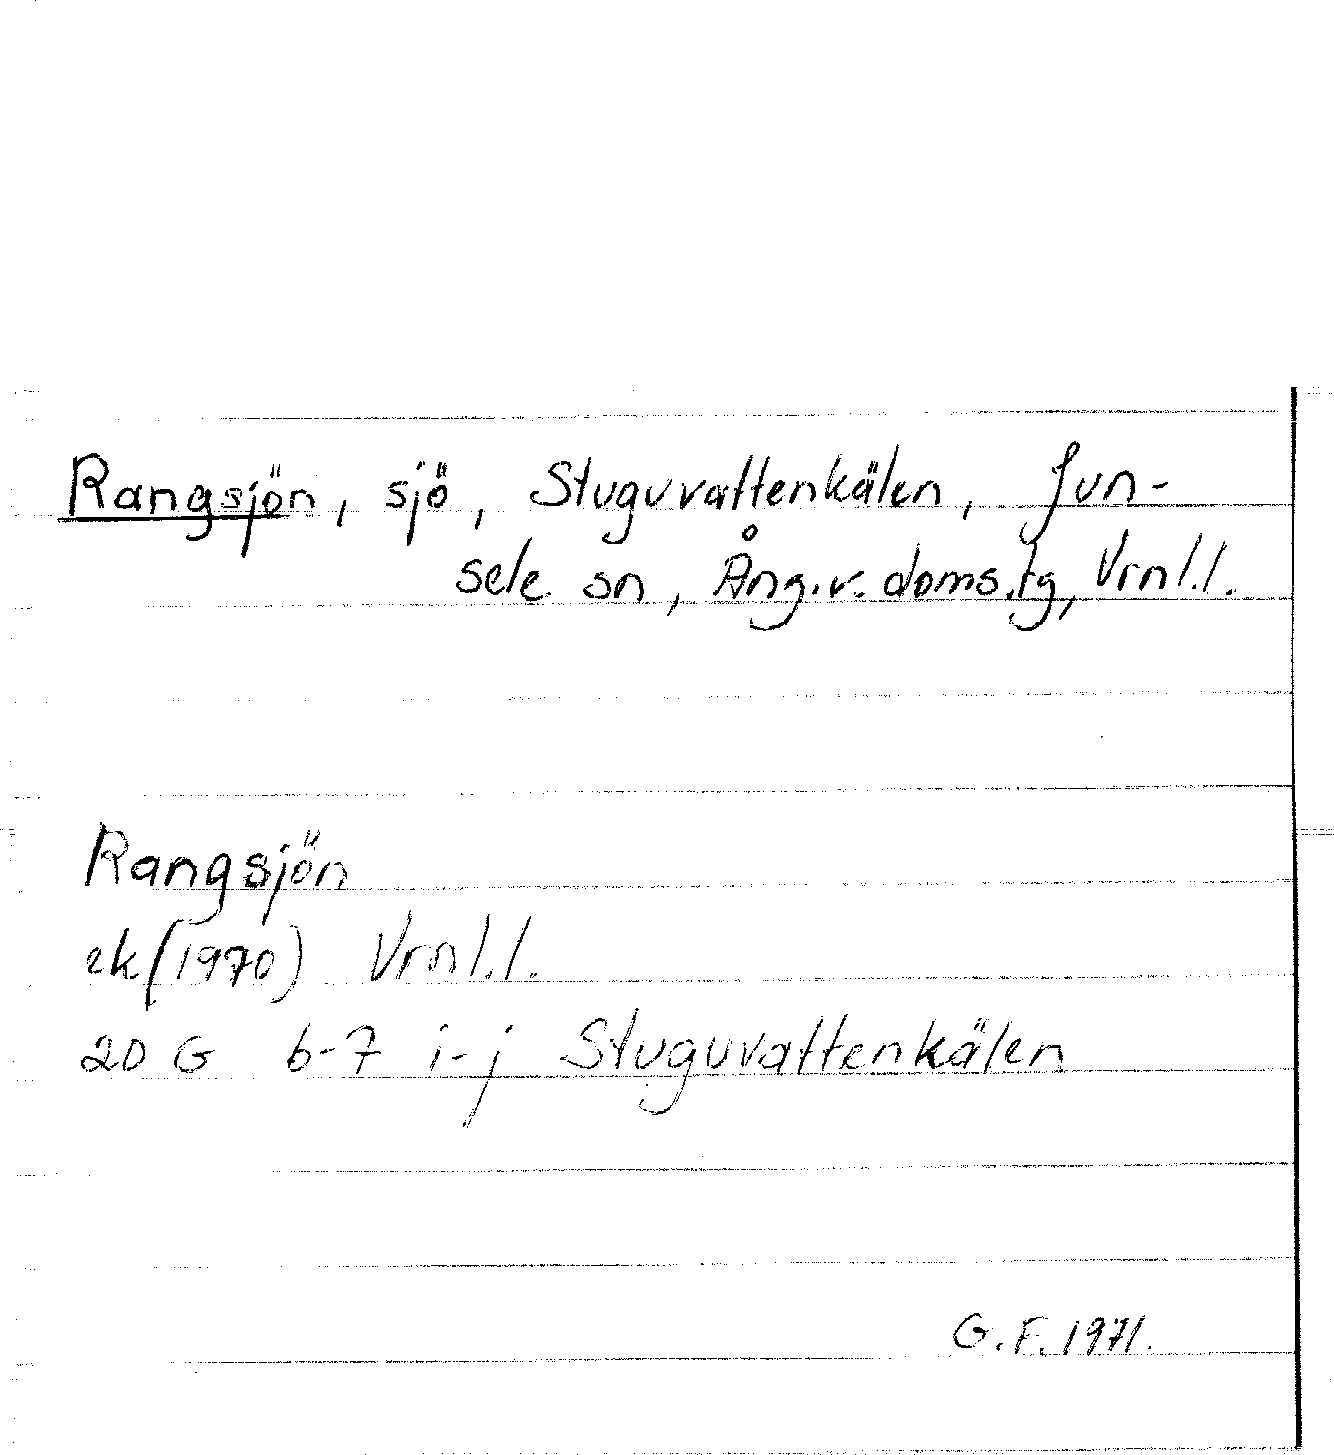 Rangsjön, sjö, Stuguvattenkälen, Jun-
sele sn, Ång.v. doms.tg, Vrnl.l.
Rangsjön
ek (1970) Vrnl.l.
20 G 6-7 i-j Stuguvattenkälen
G.F. 1971.